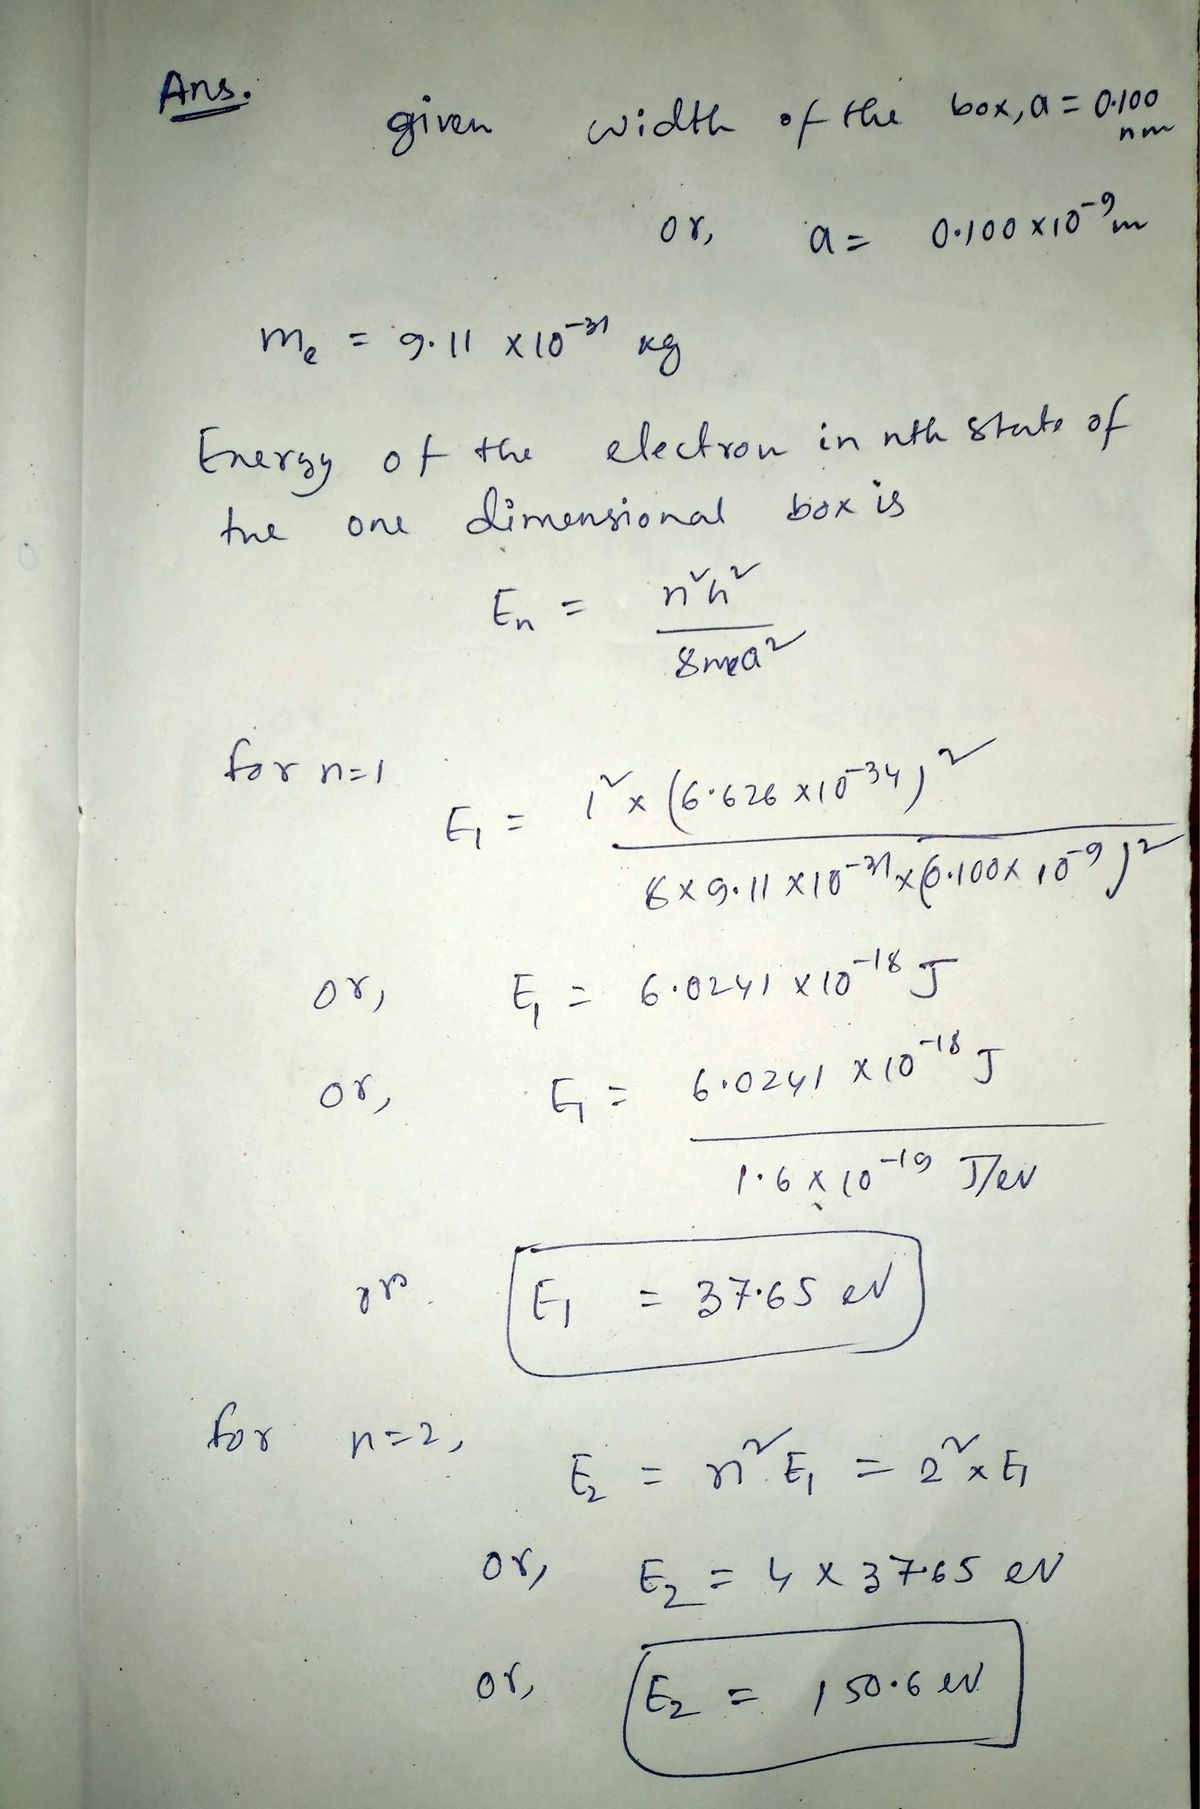 Ans.
given width of the box, a = 0.100 nm
or, a = 0.100 × 10⁻⁹ m
mₑ = 9.11 × 10⁻³¹ kg
Energy of the electron in nth state of
the one dimensional box is
Eₙ = n²h² / 8mₑa²
for n=1
E₁ = 1² × (6.626 × 10⁻³⁴)² / 8 × 9.11 × 10⁻³¹ × (0.100 × 10⁻⁹)²
or, E₁ = 6.0241 × 10⁻¹⁸ J
or, E₁ = 6.0241 × 10⁻¹⁸ J / 1.6 × 10⁻¹⁹ J/eV
or E₁ = 37.65 eV
for n=2, E₂ = n² E₁ = 2² × E₁
or, E₂ = 4 × 37.65 eV
or, E₂ = 150.6 eV